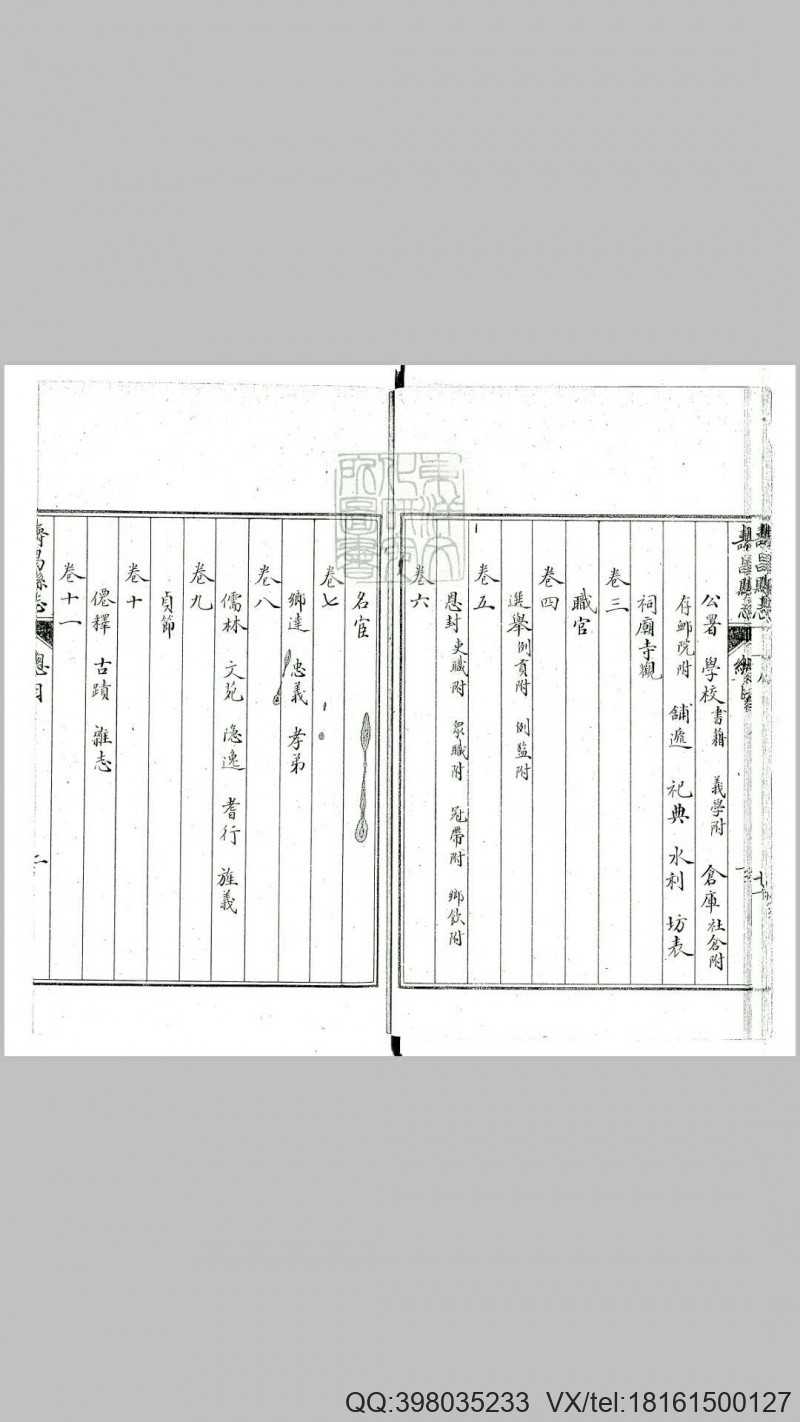 公署 學校書籍 義學附 倉庫社倉附
存卹院附 舖遞 祀典 水利 坊表
祠廟寺觀
卷三
職官
卷四
選舉例貢附 例監附
卷五
恩封吏職附 冠帶附 鄉飲附
卷六
名宦
卷七
鄉達 忠義 孝弟
卷八
儒林 文苑 隐逸 耆行 旌義
卷九
貞節
卷十
僊釋 古蹟 雜志
卷十一
壽昌縣志 總目 二
QQ:398035233 VX/tel:18161500127